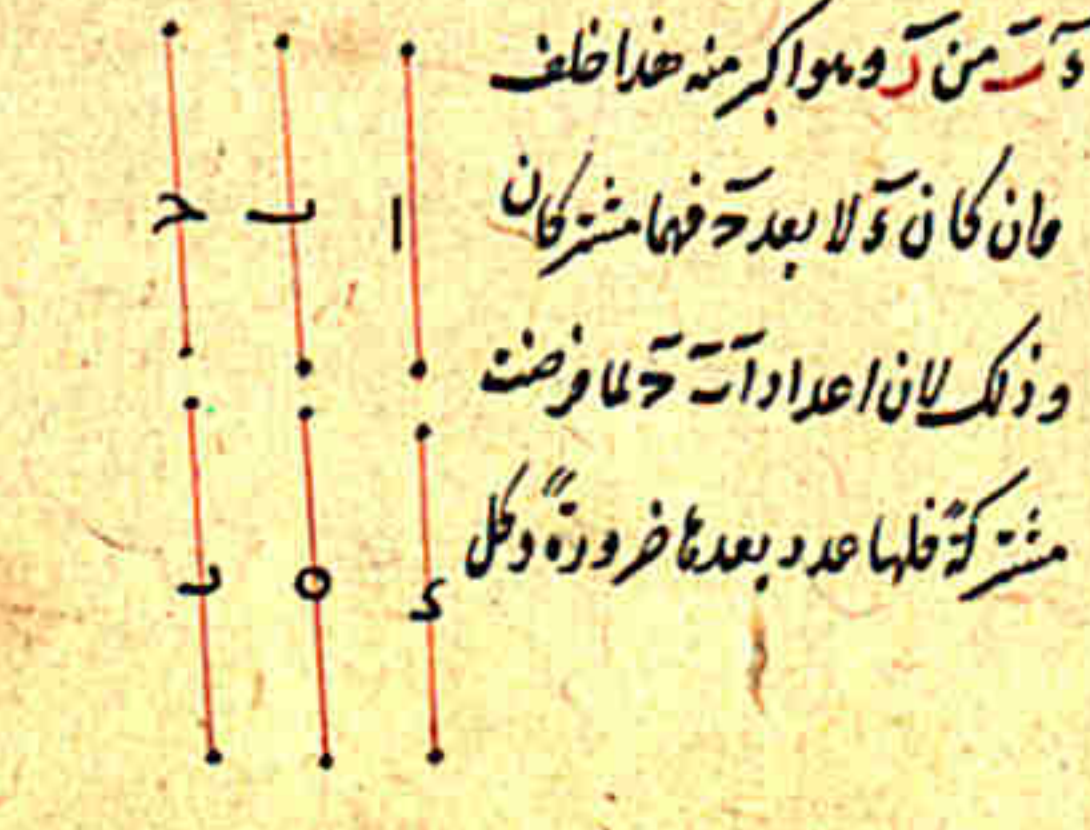 من د وهو اكبر منه هذا خلف
وان كان ء لا يعد ح فهما مشتركان
وذلك لان اعداد ا ب ح لما فرضت
مشتركة فلها عدد يعدها ضرورةً وكل
ا ب ح
ء ه د